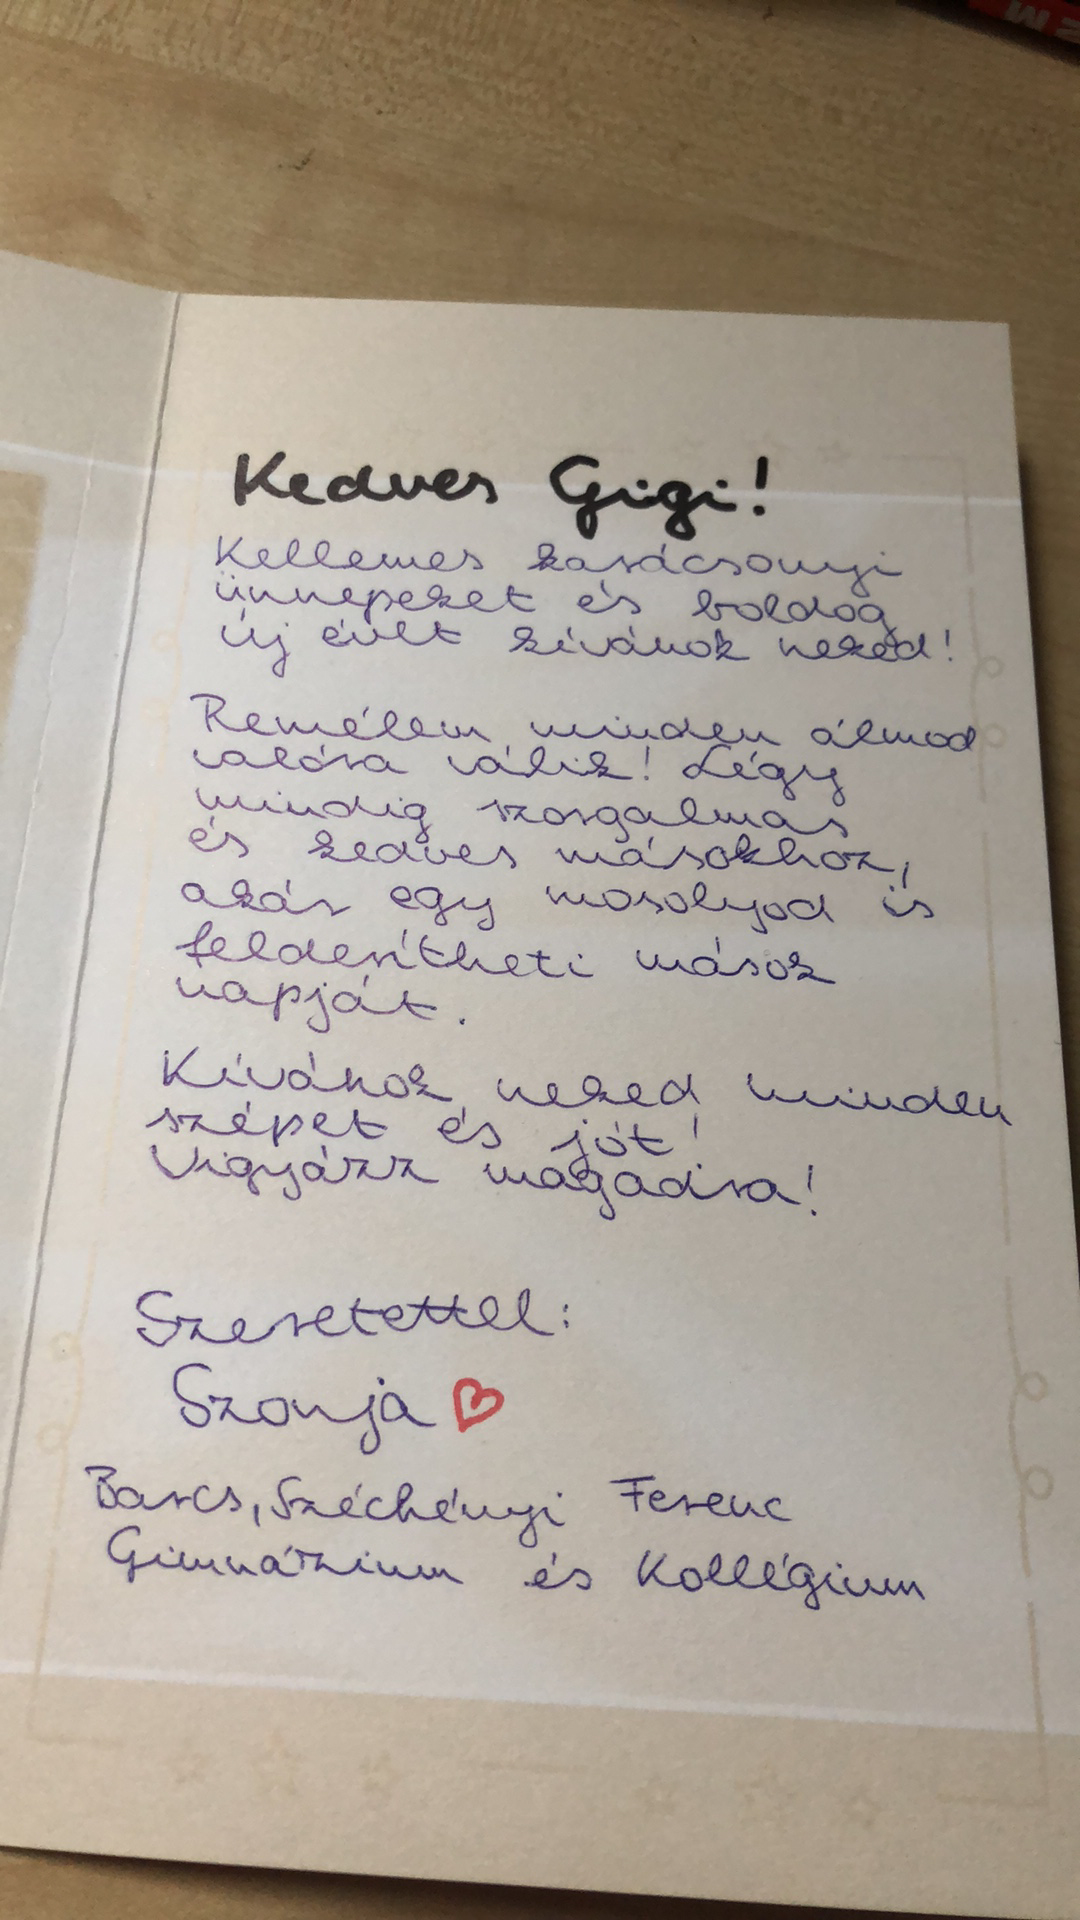 Kedves Gigi!
Kellemes karácsonyi
ünnepeket és boldog
új évet kívánok neked!
Remélem minden álmod
valóra válik! Légy
mindig szorgalmas
és kedves másokhoz,
akár egy mosolyod is
felderítheti mások
napját.
Kívánok neked minden
szépet és jót!
Vigyázz magadra!
Szeretettel:
Szonja
Barcs, Széchényi Ferenc
Gimnázium és Kollégium